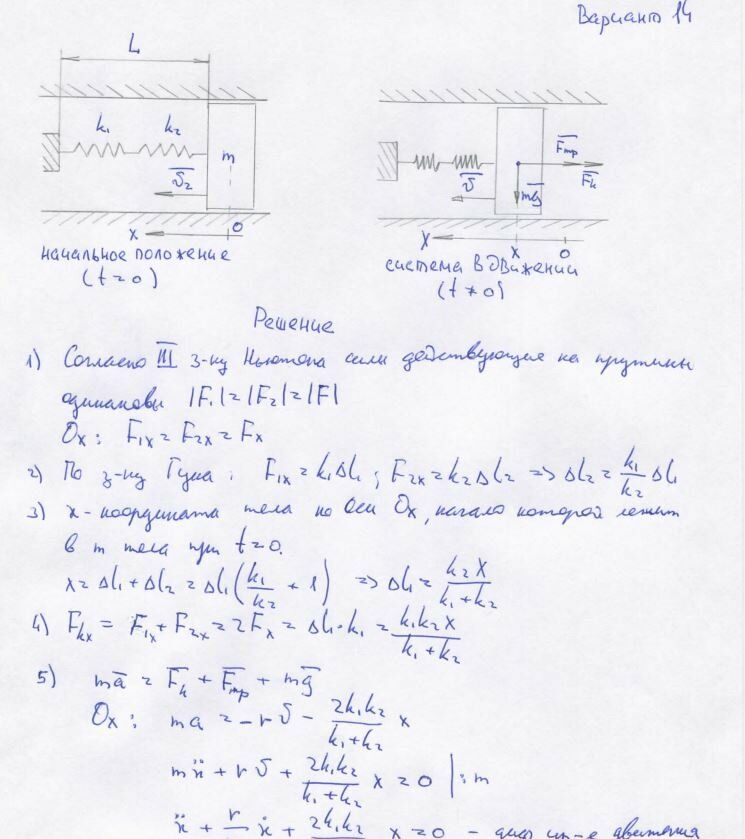 Вариант 14
L
k₁ k₂
m
v̅₂
x 0
начальное положение
(t=0)
F̅тр
F̅k
v̅
mg̅
x x 0
система в движении
(t≠0)
Решение
1) Согласно III з-ну Ньютона силы действующие на пружины
одинаковы |F₁|=|F₂|=|F|
Ox: F₁ₓ=F₂ₓ=Fₓ
2) По з-ну Гука: F₁ₓ=k₁Δl₁; F₂ₓ=k₂Δl₂ => Δl₂= k₁/k₂ Δl₁
3) x-координата тела по оси Ox, начало которой лежит
в m тела при t=0.
x=Δl₁+Δl₂=Δl₁(k₁/k₂ + 1) => Δl₁= k₂x/(k₁+k₂)
4) Fkx = F₁ₓ+F₂ₓ=2Fₓ=Δl₁·k₁= k₁k₂x/(k₁+k₂)
5) ma̅ = F̅k + F̅тр + mg̅
Ox: ma = -rv - 2k₁k₂/(k₁+k₂) x
mẍ + rv + 2k₁k₂/(k₁+k₂) x = 0 |:m
ẍ + r ẋ + 2k₁k₂ x = 0 - движения